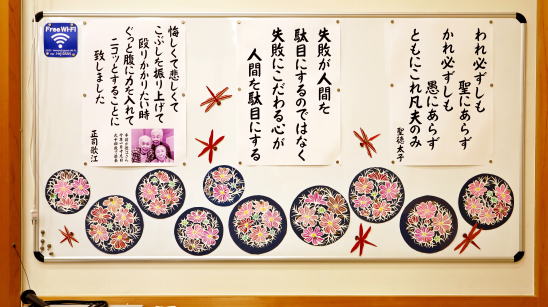 われ必ずしも
聖にあらず
かれ必ずしも
愚にあらず
ともにこれ凡夫のみ
聖徳太子
失敗が人間を
駄目にするのではなく
失敗にこだわる心が
人間を駄目にする
悔しくて悲しくて
こぶしを振り上げて
殴りかかりたい時
ぐっと腹に力を入れて
ニコッとすることに
致しました
正司歌江
Free Wi-Fi